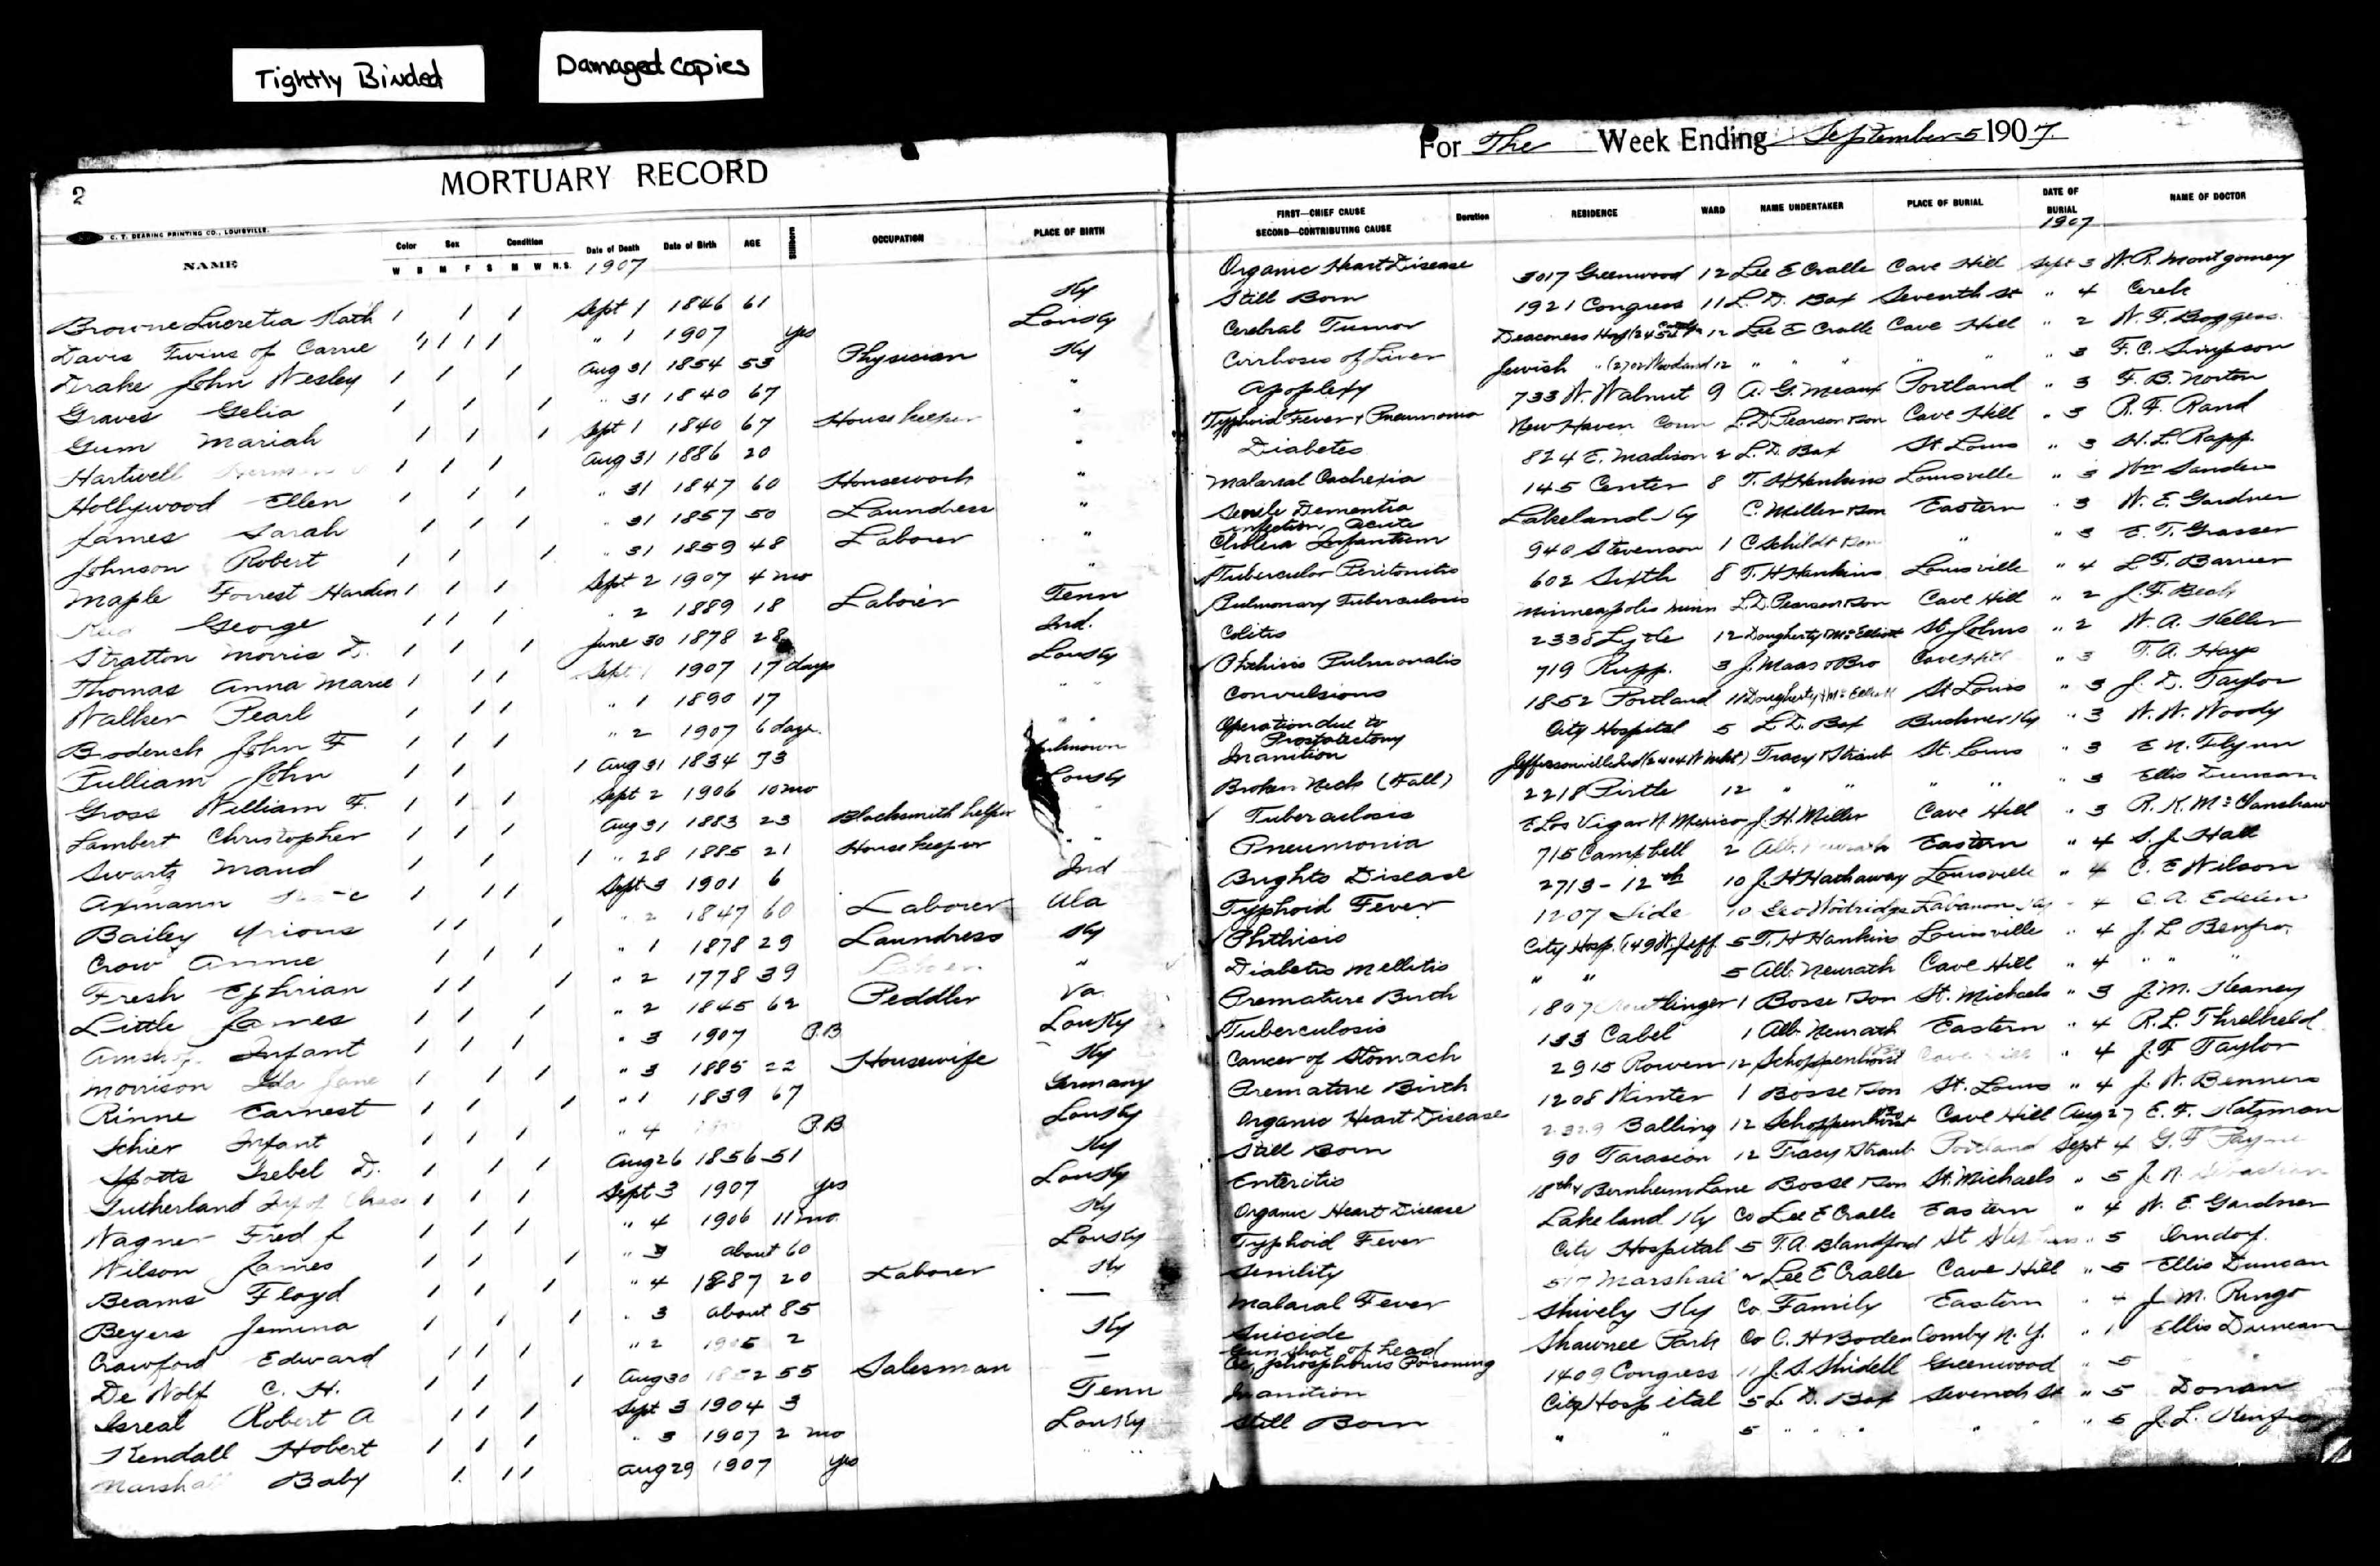 Tightly Binded
Damaged Copies
2
MORTUARY RECORD
C. T. DEARING PRINTING CO., LOUISVILLE.
NAME Color Sex Condition Date of Death Date of Birth AGE Stillborn OCCUPATION PLACE OF BIRTH
W B M F S M W N.S. 1907
Browne Lucretia Kath Sept 1 1846 61 Ky
Davis Twins of Carrie " 1 1907 yes Lousky
Drake John Wesley Aug 31 1854 53 Physician Ky
Graves Gelia " 31 1840 67 "
Gum Mariah Sept 1 1840 67 House keeper "
Hartwell Aug 31 1886 20 "
Hollywood Ellen " 31 1847 60 Housework "
James Sarah " 31 1857 50 Laundress "
Johnson Robert " 31 1859 48 Laborer "
Maple Forrest Harden Sept 2 1907 4 mo "
George " 2 1889 18 Laborer Tenn
Stratton Morris D. June 30 1878 28 Ind.
Thomas Anna Marie Sept 1907 17 days Lousky
Walker Pearl " 1 1890 17 " "
Boderick John F " 2 1907 6 days " "
Pulliam John Aug 31 1834 73 unknown
Gross William F. Sept 2 1906 10 mo Lousky
Lambert Christopher Aug 31 1883 23 Blacksmith helper "
Swartz Maud " 28 1885 21 House keeper " "
Axmann Sept 3 1901 6 Ind
Bailey " 2 1847 60 Laborer Ala
Crow Annie " 1 1878 29 Laundress Ky
Fresh Ephrian " 2 1778 39 "
Little James " 2 1845 62 Peddler Va
Infant " 3 1907 P.B LouKy
Morrison Ida Jane " 3 1885 22 Housewife Ky
Rinne Earnest " 1 1839 67 Germany
Schier Infant " 4 P.B Lousky
Spotts Isebel D. Aug 26 1856 51 Ky
Sutherland Sept 3 1907 yes Lousky
Wagner Fred J " 4 1906 11 mo Ky
Wilson James " 3 about 60 Lousky
Beams Floyd " 4 1887 20 Laborer Ky
Beyers Jemima " 3 about 85 —
Crawford Edward " 2 2 Ky
De Wolf C. H. Aug 30 1852 55 Salesman —
Isreal Robert A Sept 3 1904 3 Tenn
Kendall Hobert " 3 1907 2 mo Lousky
Baby Aug 29 1907 yes " "
For The Week Ending September 5 1907
FIRST—CHIEF CAUSE SECOND—CONTRIBUTING CAUSE Duration RESIDENCE WARD NAME UNDERTAKER PLACE OF BURIAL DATE OF BURIAL NAME OF DOCTOR
1907
Organic Heart Disease 3017 Greenwood 12 Lee E Cralle Cave Hill Sept 3 W. R. Montgomery
Still Born 1921 Congress 11 L. D. Bax Seventh St " 4 Cerek
Cerebral Tumor Deaconess Hosp 12 Lee E Cralle Cave Hill " 2 W. F. Boggess
Cirrhosis of Liver Jewish " (2702 Woodland 12 " " " " " 3 F. C. Simpson
Apoplexy 733 W. Walnut 9 A. G. Meaux Portland " 3 F. B. Norton
Typhoid Fever + Pneumonia New Haven Conn L. D. Pearson & Son Cave Hill " 3 R. F. Rand
Diabetes 824 E. Madison 2 L. D. Bax St. Louis " 3 H. L. Rapp.
Malarial Cachexia 145 Center 8 T. H Hankins Louisville " 3 Wm Sanders
Senile Dementia Lakeland Ky C. Miller & Son Eastern " 3 W. E. Gardner
infection acute
Cholera Infantum 940 Stevenson 1 C Schildt & Son " " 3 E. T. Grasser
Tubercular Peritonitis 602 Sixth 8 T. H Hankins Louisville " 4 L. F. Barrier
Pulmonary Tuberculosis Minneapolis Minn L. D. Pearson & Son Cave Hill " 2 J. F. Beck
Colitis 2338 Lytle 12 Dougherty & McElliott St Johns " 2 W. A. Keller
Phthisis Pulmonalis 719 Rupp. 3 J. Maas & Bro Cave Hill " 3 T. A. Hays
Convulsions 1852 Portland 11 Dougherty & McElliott St Louis " 3 J. D. Taylor
Operation due to
Prostatectomy City Hospital 5 L. D. Bax Buckner Ky " 3 W. W. Woody
Inanition Jeffersonville Ind (2404 W Mkt) Tracy & Straub St. Louis " 3 E N. Flynn
Broken Neck (Fall) 2218 Pirtle 12 " " " " " 3 Ellis Duncan
Tuberculosis E Los Vigas N. Mexico J. H. Miller Cave Hill " 3
Pneumonia 715 Campbell 2 Eastern " 4 S. J. Hall
Brights Disease 2713-12th 10 J. H Hathaway Louisville " 4 C. E Wilson
Typhoid Fever 1207 Side 10 Geo Woodridge Lebanon Ky " 4 C. A. Edelen
Phthisis City Hosp. (149 W. Jeff. 5 T. H Hankins Louisville " 4
Diabetis Mellitis " " 5 Alb. Neurath Cave Hill " 4 " " "
Premature Birth 1807 1 Bosse & Son St. Michaels " 3 J. M. Keaney
Tuberculosis 133 Cabel 1 Alb. Neurath Eastern " 4 R. L. Threlkeld
Cancer of Stomach 2915 Rowen 12 Schoppenhorst " 4 J. F Taylor
Premature Birth 1208 Winter 1 Bosse & Son St. Louis " 4 J. W. Benners
Organic Heart Disease Balling 12 Schoppenhorst Cave Hill Aug 27 E. F. Katzman
Still Born 90 Tarascon 12 Tracy & Straub Portland Sept 4 G. F
Enteritis 18th & Bernheim Lane Bosse & Son St. Michaels " 5
Organic Heart Disease Lakeland Ky Co Lee E Cralle Eastern " 4 W. E. Gardner
Typhoid Fever City Hospital 5 T. A. Blandford " 5
Senility 517 Marshall 2 Lee E Cralle Cave Hill " 5 Ellis Duncan
Malarial Fever Shively Ky Co Family Eastern " 4 J. M. Ringo
Suicide
Gun shot of head Shawnee Park Co C. H Boden Comby N. Y. " 1 Ellis Duncan
phosphorus Poisoning 1409 Congress 11 J. S. Shidell Greenwood " 5 "
Inanition City Hospital 5 L. D. Bax Seventh St " 5 Donan
Still Born " " 5 " " " " " 5